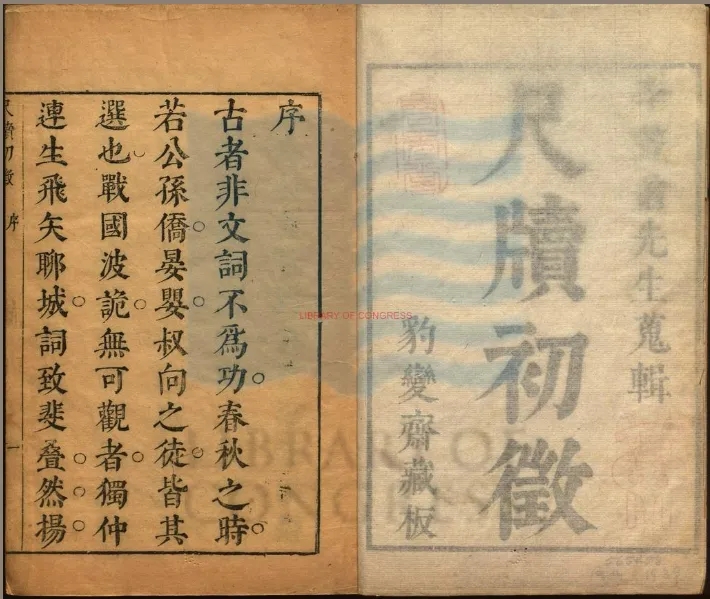 先生蒐輯
尺牘初徵
豹變齋藏板
序
古者非文詞不爲功春秋之時
若公孫僑晏嬰叔向之徒皆其
選也戰國波詭無可觀者獨仲
連生飛矢聊城詞致斐亹然揚
尺牘初徵 序 一
LIBRARY OF CONGRESS
LIBRARY OF
CONGRESS